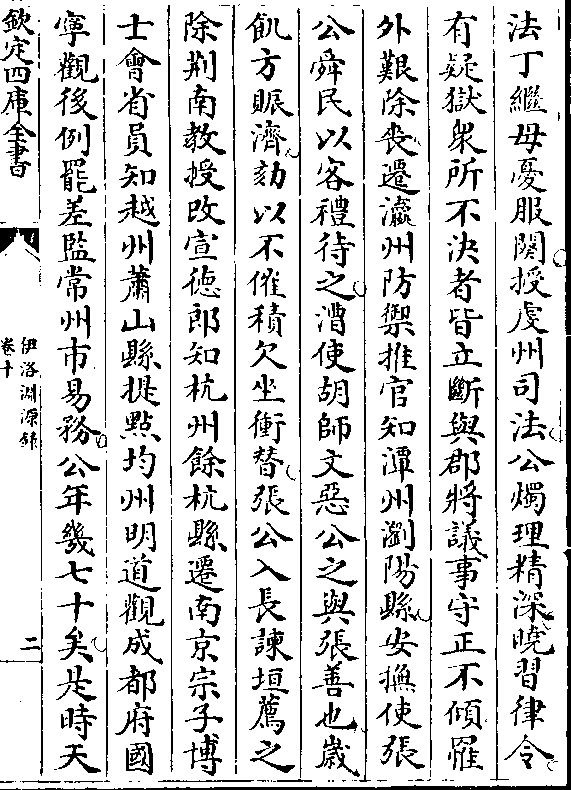 法丁繼母憂服闋授䖍州司法公燭理精深曉習律令
有疑獄衆所不決者皆立斷與郡將議事守正不傾罹
外艱除喪遷瀛州防禦推官知潭州瀏陽縣安撫使張
公舜民以客禮待之漕使胡師文惡公之與張善也歲
飢方賑濟劾以不催積欠坐衝替張公入長諫垣薦之
除荆南教授改宣德郎知杭州餘杭縣遷南京宗子博
士會省員知越州蕭山縣提點均州明道觀成都府國
寧觀後例罷差監常州市易務公年幾七十矣是時天
欽定四庫全書
伊洛淵源録
卷十
二